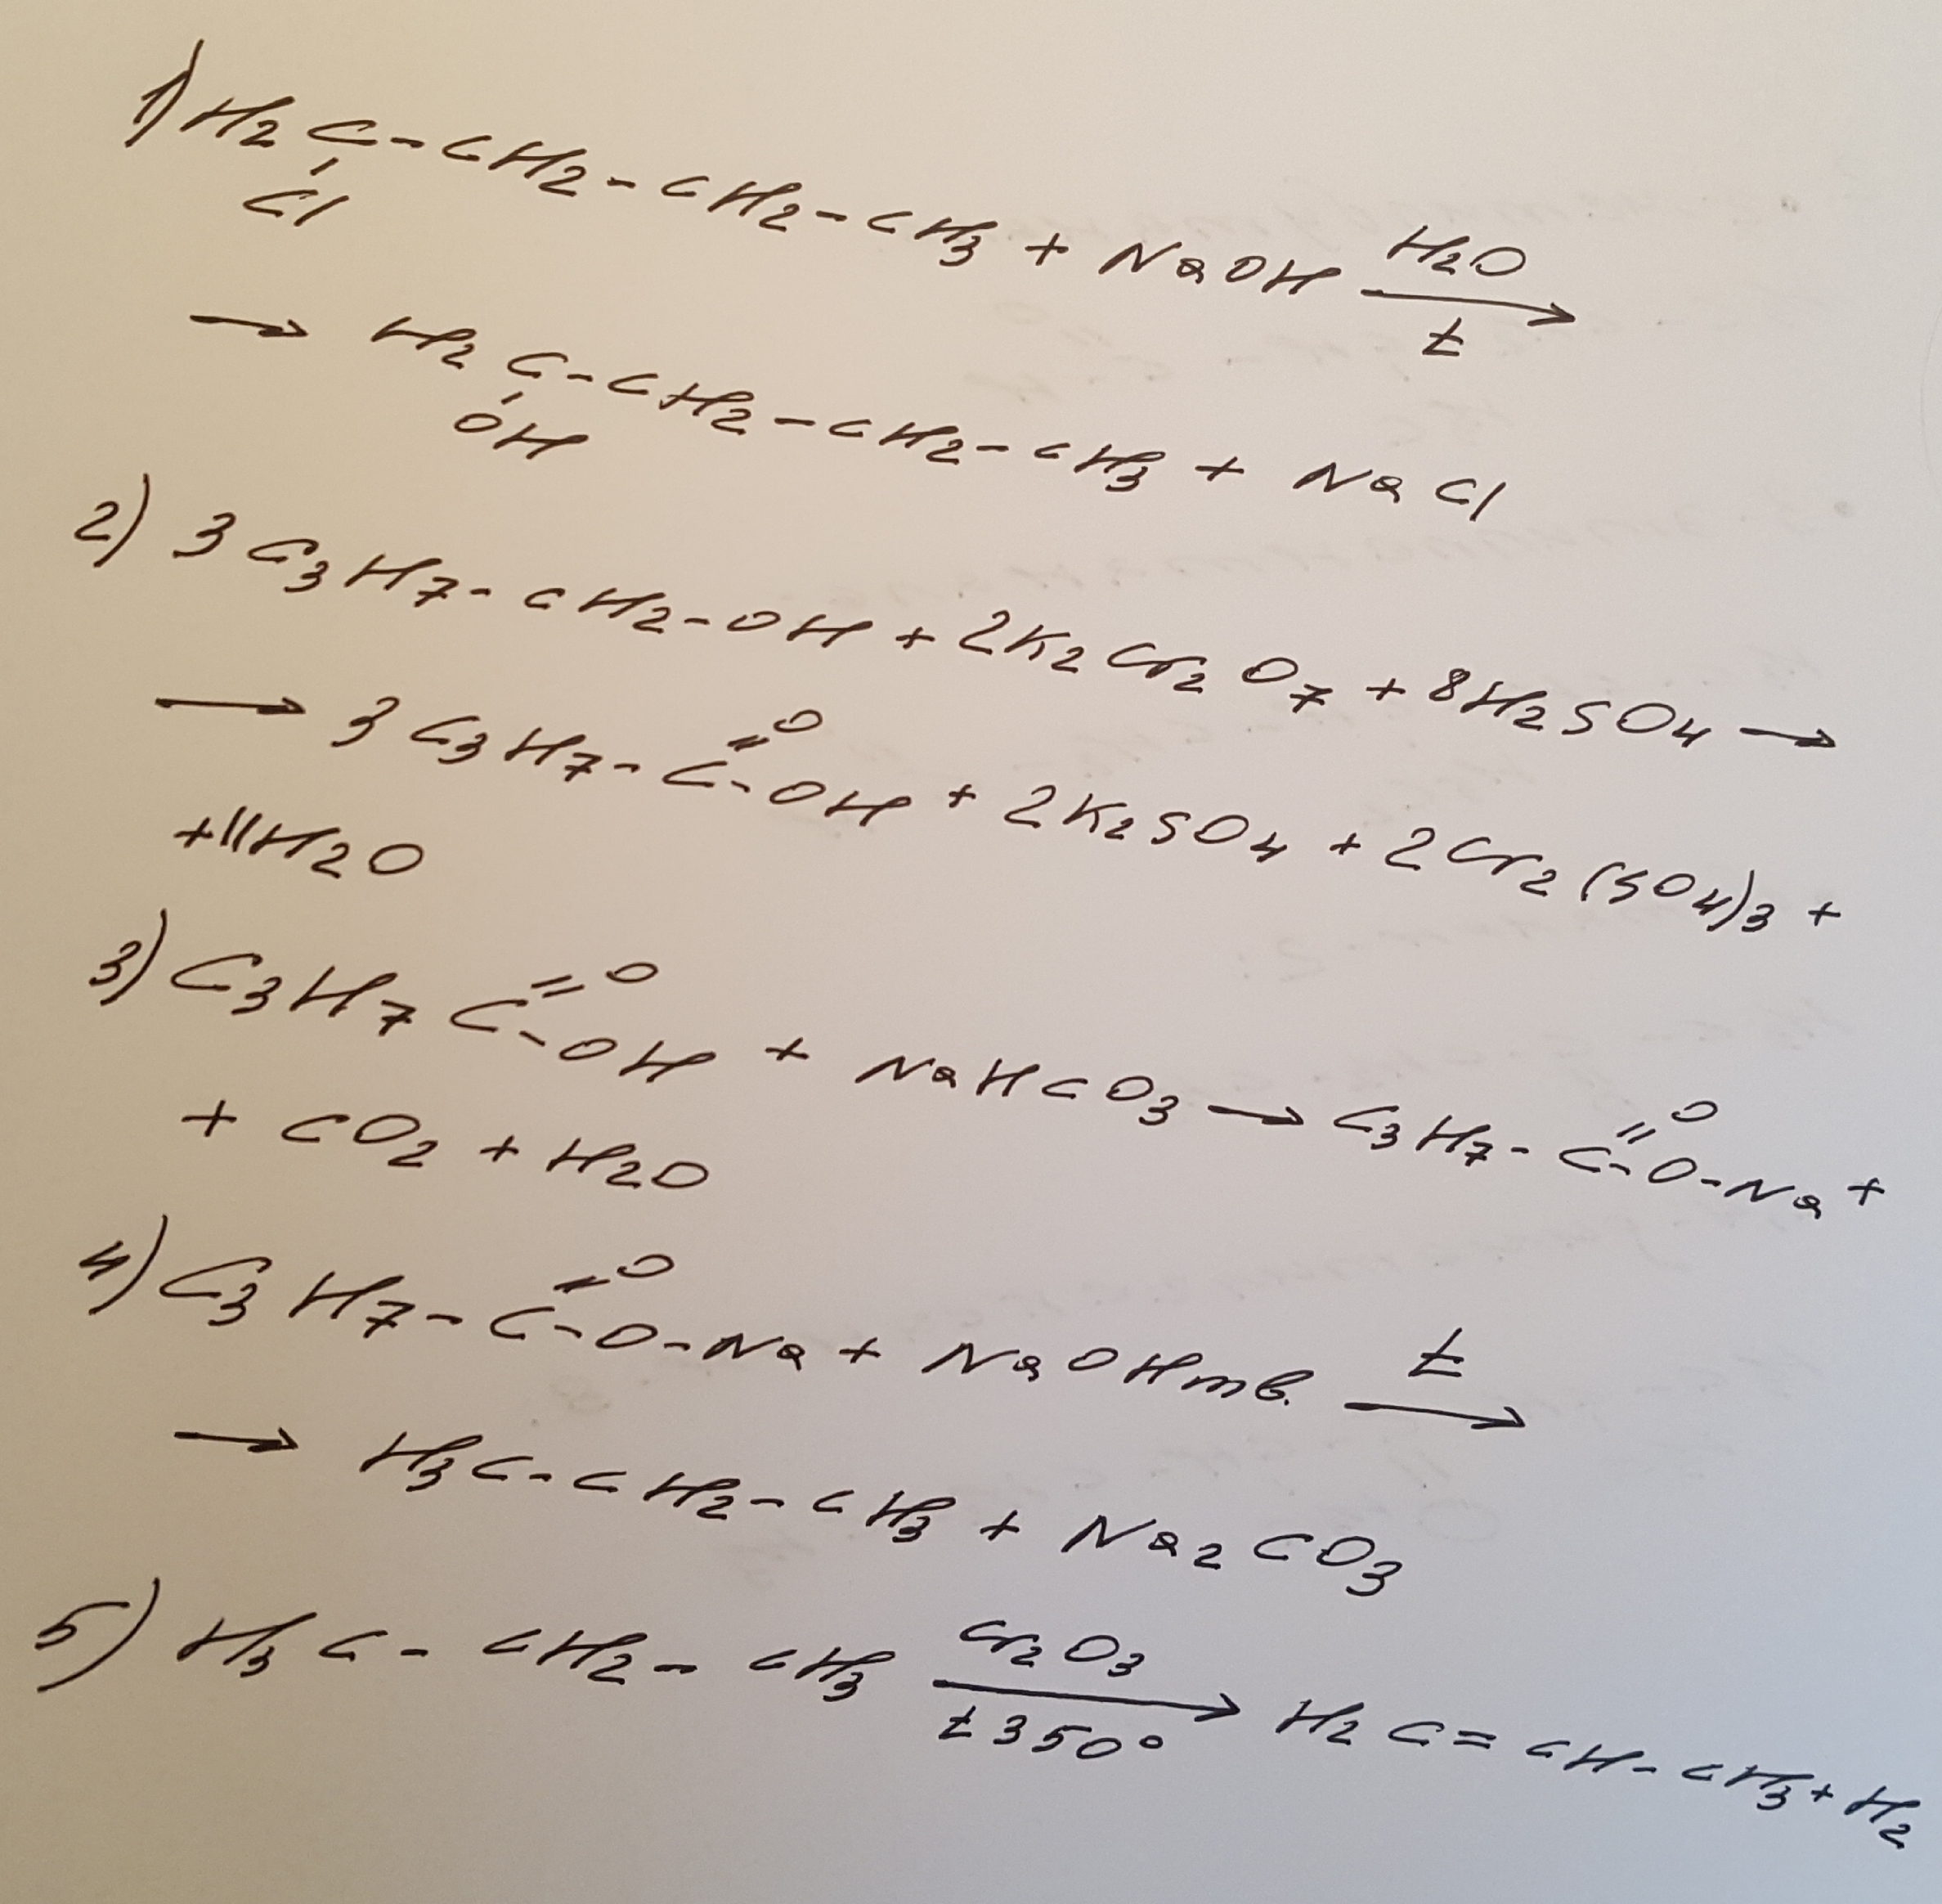 1) H2C-CH2-CH2-CH3 + NaOH H2O →
Cl t
→ H2C-CH2-CH2-CH3 + NaCl
OH
2) 3C3H7-CH2-OH + 2K2Cr2O7 + 8H2SO4 →
→ 3C3H7-C=O-OH + 2K2SO4 + 2Cr2(SO4)3 +
+11H2O
3) C3H7C=O-OH + NaHCO3 → C3H7-C=O-O-Na +
+ CO2 + H2O
4) C3H7-C=O-O-Na + NaOHтв. t →
→ H3C-CH2-CH3 + Na2CO3
5) H3C-CH2-CH3 Cr2O3 → H2C=CH-CH3+H2
t350°